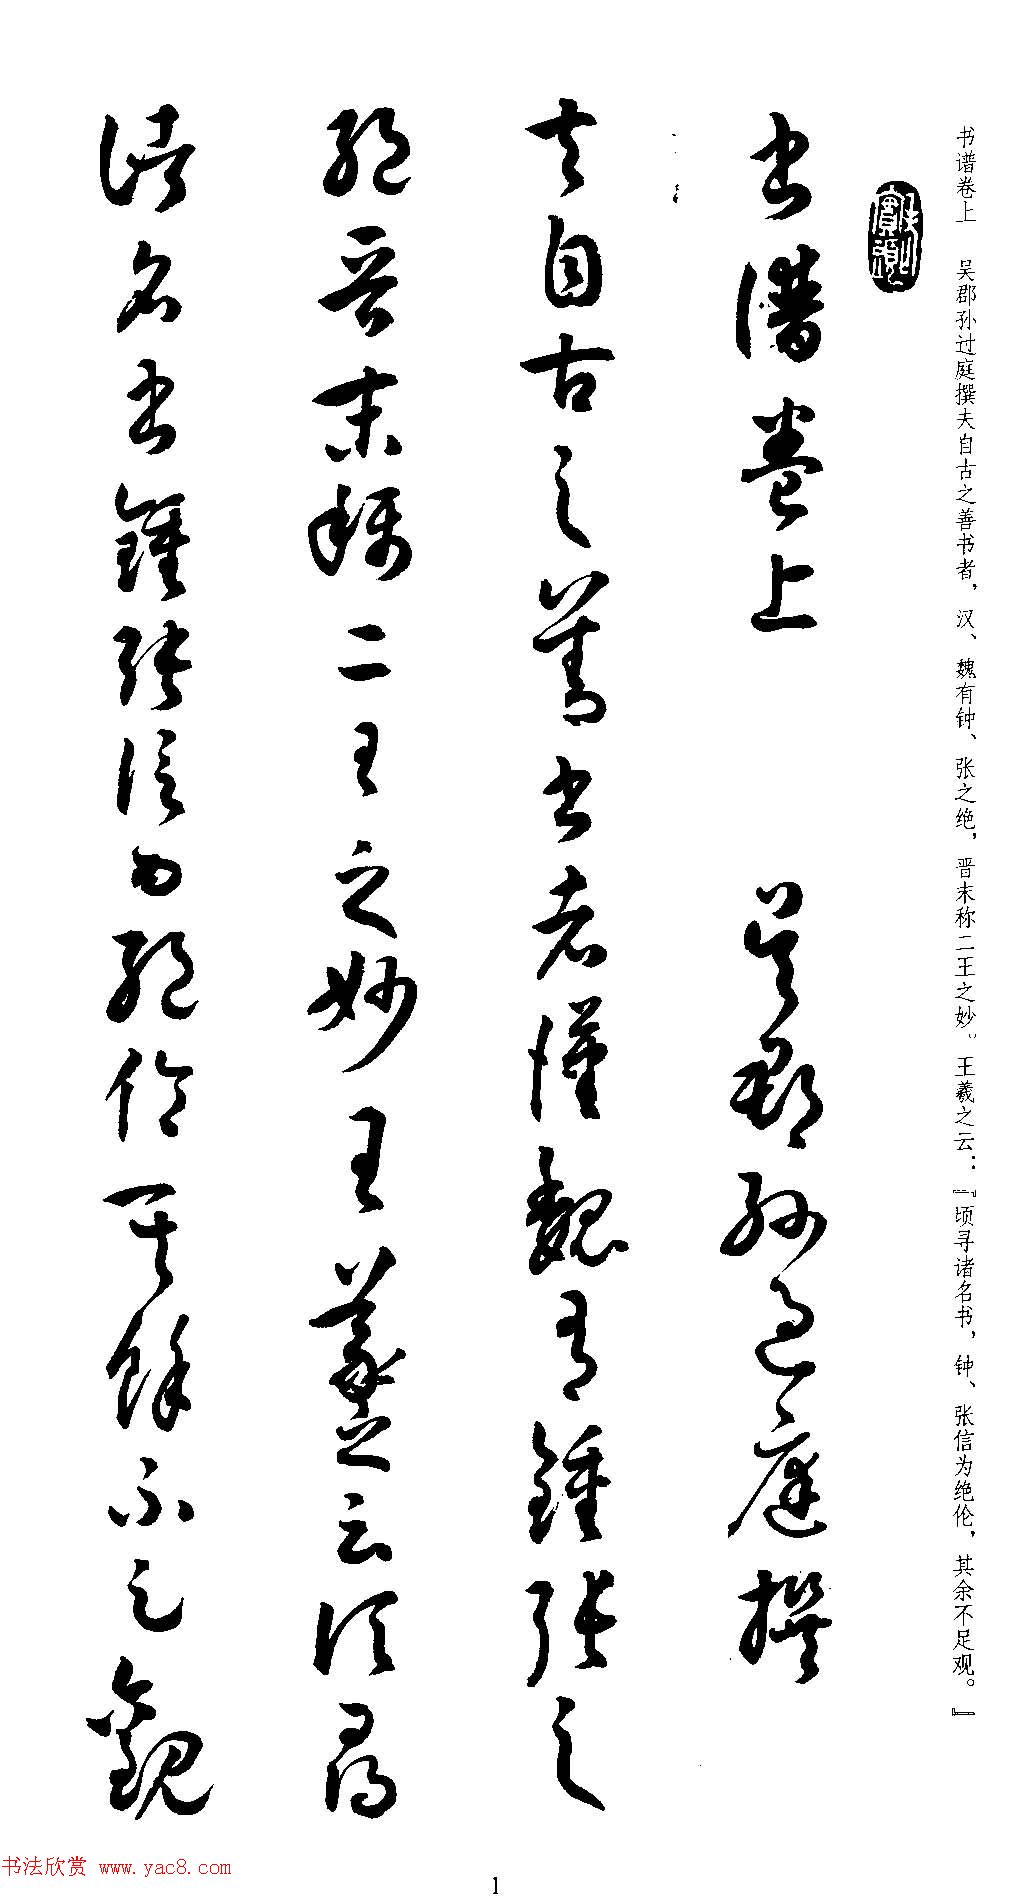 书谱卷上 吴郡孙过庭撰夫自古之善书者，汉、魏有钟、张之绝，晋末称二王之妙。王羲之云：『顷寻诸名书，钟、张信为绝伦，其余不足观。』
書譜卷上 吳郡孫過庭撰
夫自古之善書者漢魏有鍾張之
絕晉末稱二王之妙王羲之云頃尋
諸名書鍾張信為絕倫其餘不足觀
书法欣赏 www.yac8.com
1